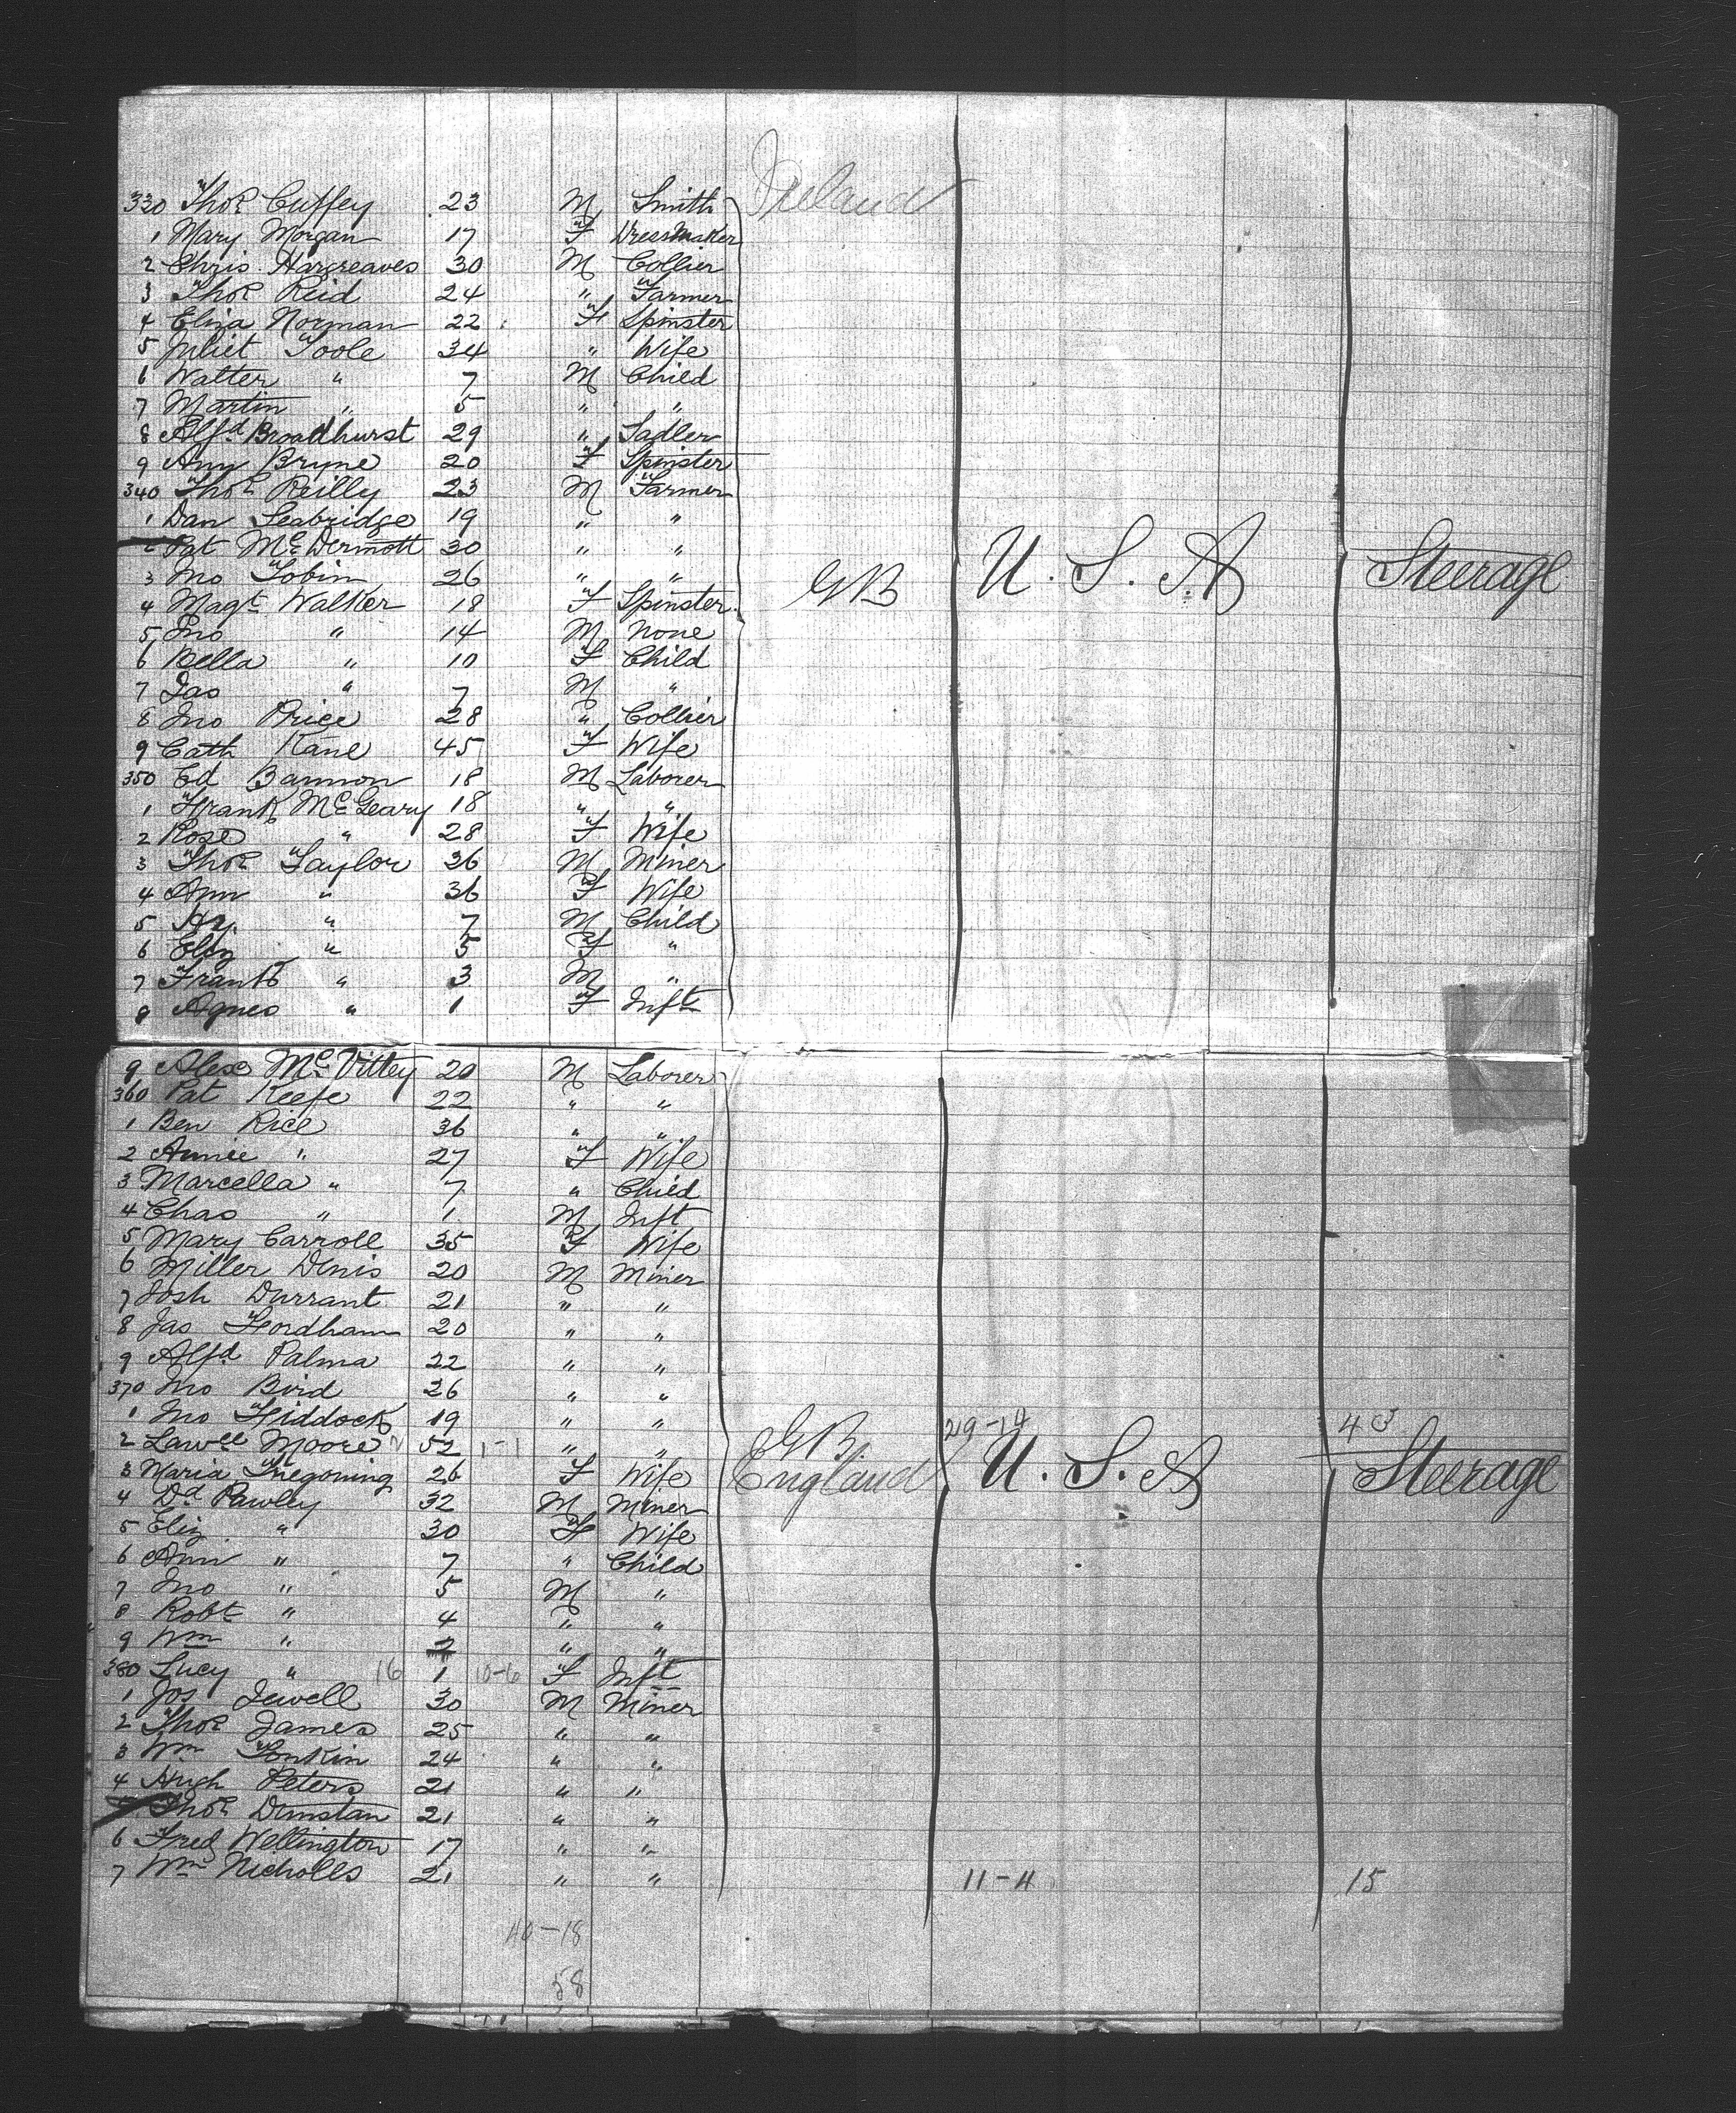 Ireland
330 Thos Cuffey 23 M Smith
1 Mary Morgan 17 F Dressmaker
2 Chris. Hargreaves 30 M Collier
3 Thos Reid 24 " Farmer
4 Eliza Norman 22 F Spinster
5 Juliet Toole 34 " Wife
6 Walter " 7 M Child
7 Martin " 5 " "
8 Alfd Broadhurst 29 " Sadler
9 Any Bryne 20 F Spinster
340 Thos Reilly 23 M Farmer
1 Dan Seabridge 19 " "
2 Pat McDermott 30 " "
3 Jno Tobin 26 " "
GB U. S. A Steerage
4 Magt Walker 18 F Spinster
5 Jno " 14 M None
6 Bella " 10 F Child
7 Jas " 7 M "
8 Jno Price 28 " Collier
9 Cath Kane 45 F Wife
350 Ed Bannon 18 M Laborer
1 Frank McGeary 18 " "
2 Rose " 28 F Wife
3 Thos Taylor 36 M Miner
4 Ann " 36 F Wife
5 Hy. " 7 M Child
6 Eliz " 5 F "
7 Frank " 3 M "
8 Agnes " 1 F Inft
9 Alex McVittey 20 M Laborer
360 Pat Keefe 22 " "
1 Ben Rice 36 " "
2 Annie " 27 F Wife
3 Marcella " 7 " Child
4 Chas " 1 M Inft
5 Mary Carroll 35 F Wife
6 Miller Denis 20 M Miner
7 Josh Durrant 21 " "
8 Jas Fordham 20 " "
9 Alfd Palma 22 " "
370 Jno Bird 26 " "
1 Jno Fiddock 19 " " 29-14 43
2 Lawce Moore 52 1-1 " " GB
3 Maria Tregoning 26 F Wife England U. S. A Steerage
4 Dd Pawley 32 M Miner
5 Eliz " 30 F Wife
6 Ann " 7 " Child
7 Jno " 5 M "
8 Robt " 4 " "
9 Wm " 2 " "
380 Lucy " 16 1 10-6 F Inft
1 Jos Jewell 30 M Miner
2 Thos James 25 " "
3 Wm Tonkin 24 " "
4 Hugh Peters 21 " "
Thos Dunstan 21 " "
6 Fred Wellington 17 " "
7 Wm Nicholls 21 " " 11-4 15
40-18
58